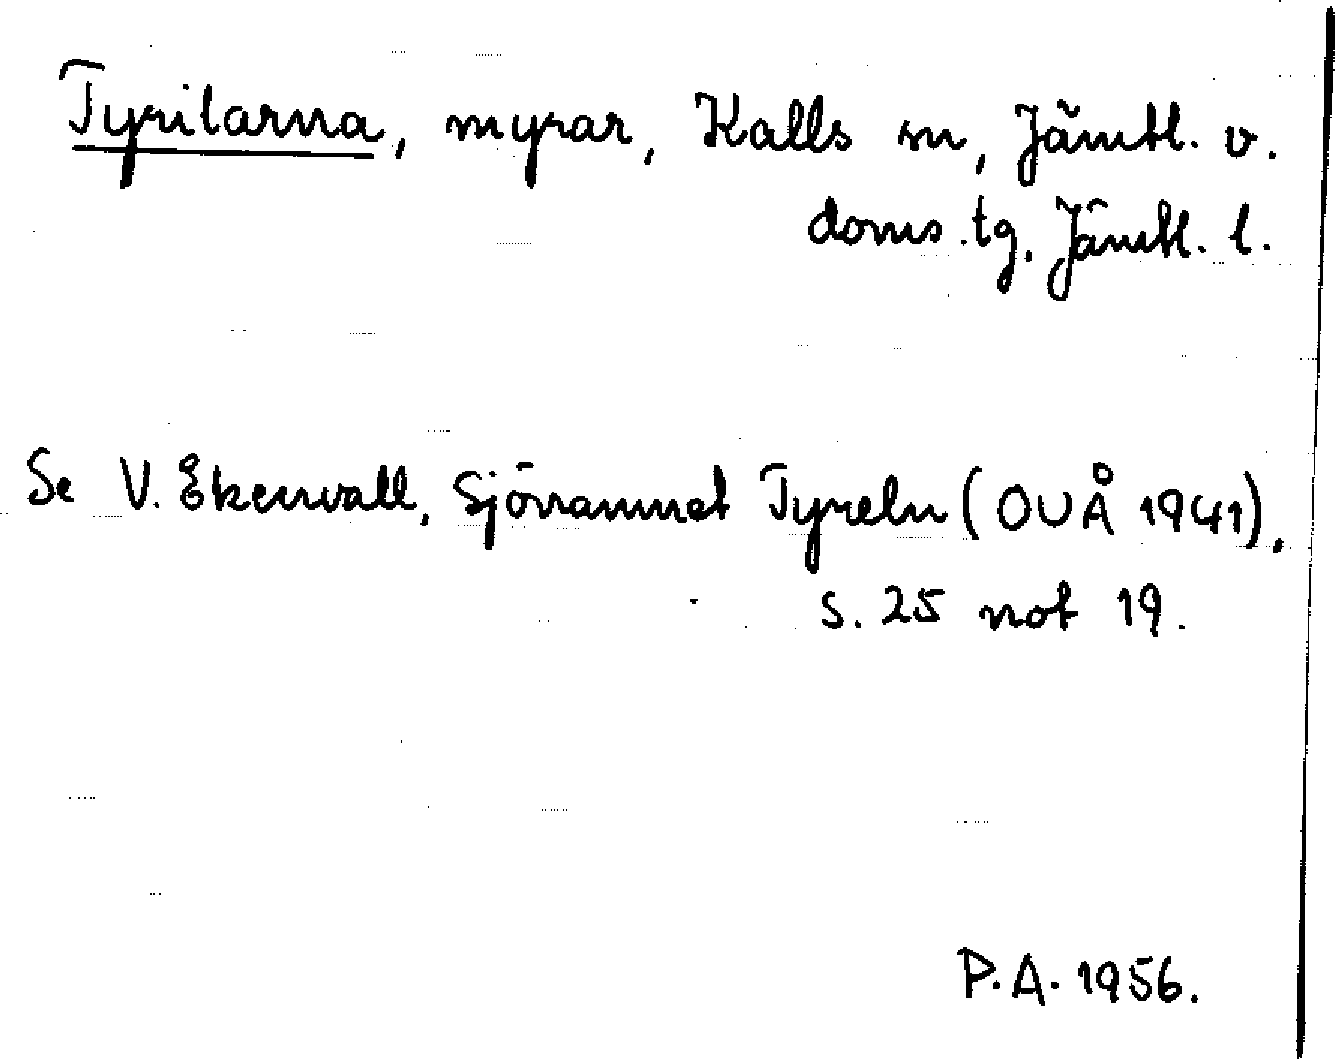 Tyrilarna, myrar, Kalls sn, Jämtl. v.
doms.tg. Jämtl. l.
Se V. Ekenvall, Sjönamnet Tyreln (OUÅ 1941),
s. 25 not 19.
P.A. 1956.